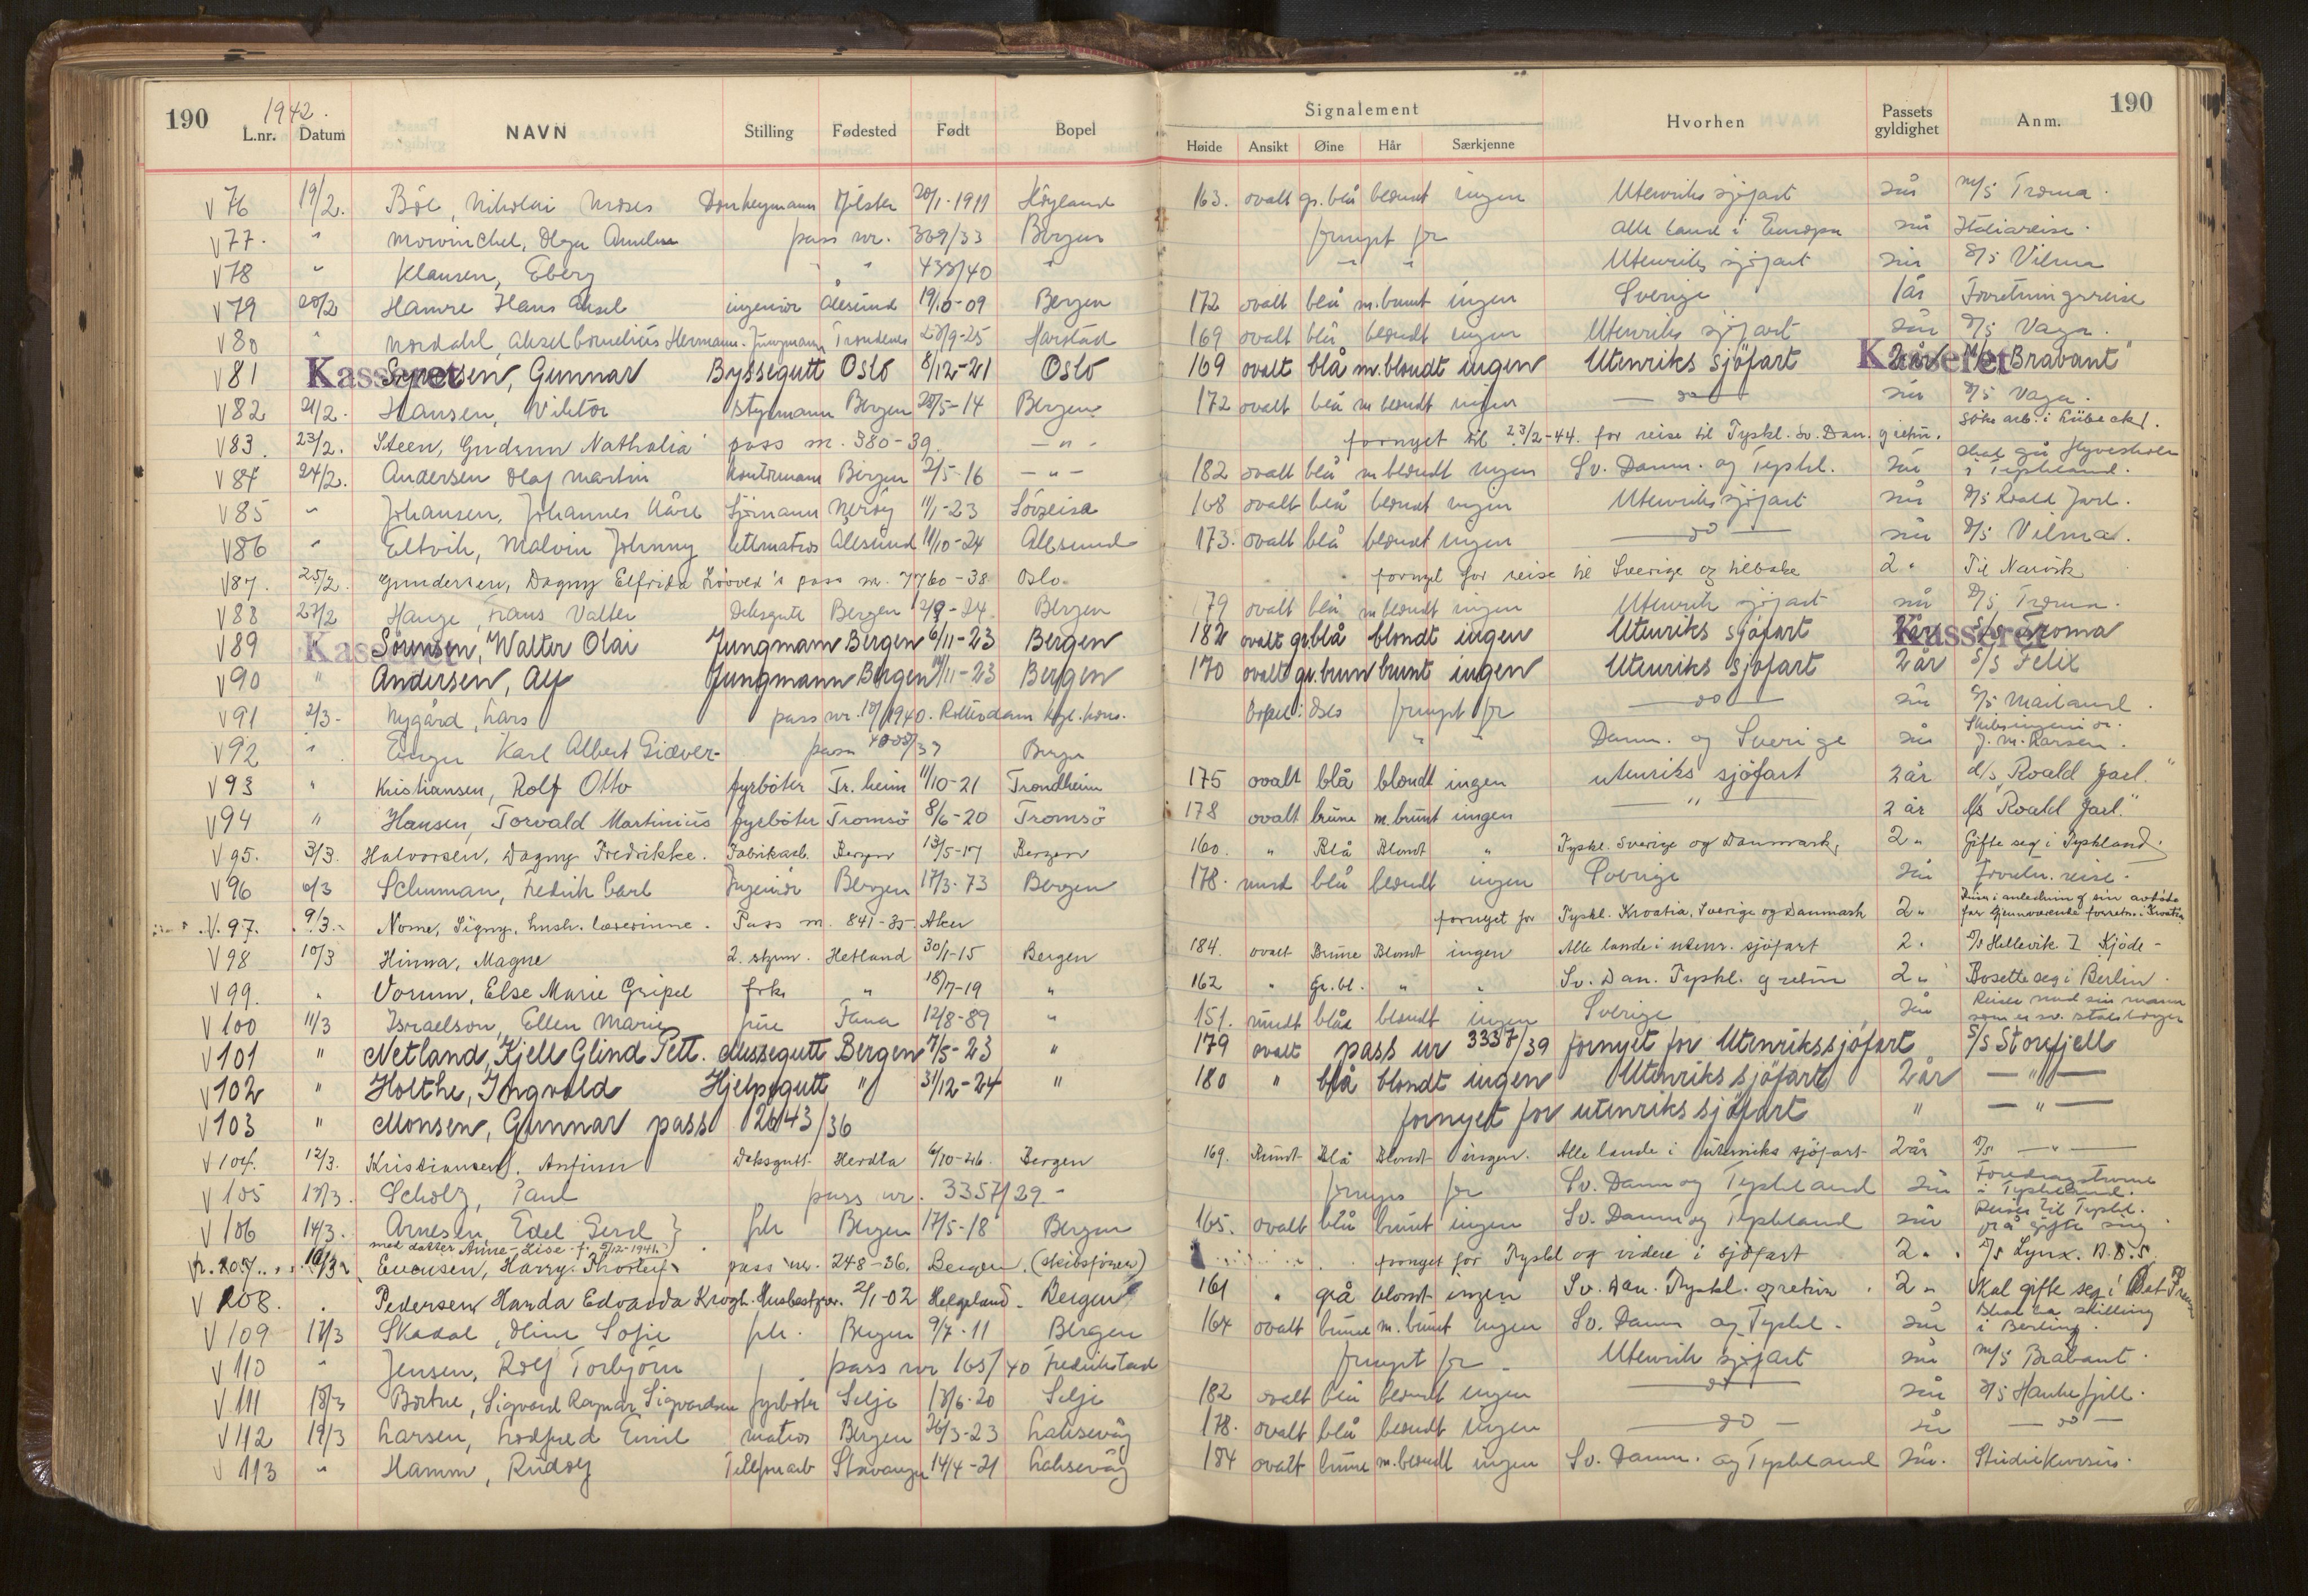 190 1942. 190
L.nr. Datum NAVN Stilling Fødested Født Bopel Signalement Hvorhen Passets gyldighet Anm.
Høide Ansikt Øine Hår Særkjenne
V 76 19/2. Nikolai Moses 20/1-1911 Höyland 163. ovalt gr.blå blondt ingen Utenriks sjöfart 2 år m/s Troma.
V 77. " Mowinckel, Olga pass nr. 309/33 Bergen fornyet for alle land i Europa 2 år Italiareise.
V 78 " Klausen, Eberg " " 433/40 " " " Utenriks sjöfart 2 år S/s Vilma
V 79 20/2 Hamre Hans Aksel ingeniör Ålesund 19/10-09 Bergen 172 ovalt blå m.brunt ingen Sverige 1 år Forretningsreise
V 80 " Nordahl, Aksel Cornelius Hermann. Jungmann Trondenes 23/9-25 Harstad 169 ovalt blå blondt ingen Utenriks sjöfart 2 år S/s Vaga.
V 81 Kasseret Gunnar Byssegutt Oslo 8/12-21 Oslo 169 ovalt blå m.blondt ingen Utenriks sjöfart Kasseret 2 år M/s "Brabant"
V 82 21/2. Hansen, Viktor Styrmann Bergen 28/5-14 Bergen 172 ovalt blå m blondt ingen — do — 2 år S/s Vaga.
V 83. 23/2. Steen, Gudrun Nathalia pass nr. 380-39. — " - fornyet til 23/2-44. for reise til Tyskl. Sv. Dan. og retur. Söke arb. i Lübeck.
V 84 24/2. Andersen Olaf Martin Kontormann Bergen 2/5-16 — " — 182 ovalt blå m blondt ingen Sv. Danm. og Tyskl. 2 år Skal gå Flyveskole i Tyskland.
V 85 " Johansen, Johannes Kåre Sjömann 11/1-23 Sörreisa 168 ovalt blå blondt ingen Utenriks sjöfart 2 år S/s Roald Jarl.
V 86 " Eltvik, Malvin Johnny lettmatros Ålesund 11/10-24 Ålesund 173. ovalt blå blondt ingen — do — 2 år S/s Vilma.
V 87. 25/2. Gundersen, Dagny Elfrida pass nr. 7760-38 Oslo. fornyet for reise til Sverige og tilbake 2 " Til Narvik
V 88 27/2 Hauge, Frans Valter Deksgutt Bergen 12/9-24. Bergen 79 ovalt blå m blondt ingen Utenriks sjöfart 2 år S/s Troma.
V 89 Kasseret Sörensen, Walter Olai Jungmann Bergen 6/11-23 Bergen 182 ovalt gr.blå blondt ingen Utenriks sjöfart 2 år Kasseret S/s Troma
V 90 " Andersen, Alf Jungmann Bergen 19/11-23 Bergen 170 ovalt gr.brun brunt ingen Utenriks sjöfart 2 år S/s Felix
V 91 2/3- Nygård, Lars pass nr. 10/1940. Rotterdam kgl. kons. Bopel: Oslo fornyet for — do — 2 år S/s Mailand.
V 92 " Karl Albert Giæver- pass 4005/37 Bergen " " Danm. og Sverige 2 år Skibsingeniör. J. M. Larsen.
V 93 " Kristiansen, Rolf Otto fyrböter Tr.heim 11/10-21 Trondheim 175 ovalt blå blondt ingen utenriks sjöfart 2 år d/s "Roald Jarl."
V 94 " Hansen, Torvald Martinius fyrböter Tromsö 8/6-20 Tromsö 178 ovalt brune m.brunt ingen — " — 2 år d/s "Roald Jarl."
V 95. 3/3. Halvorsen, Dagny Fredrikke. Fabrikarb. Bergen 13/5-17 Bergen 160. " Blå Blondt " Tyskl. Sverige og Danmark. 2 " Gifte seg i Tyskland.
V 96 6/3 Schuman, Fredrik Carl Ingeniör Bergen 17/3-73 Bergen 178. rundt blå blondt ingen Sverige 2 år Forretn. reise.
V. 97. 9/3. Nome, Signy, hush. lærerinne. Pass nr. 841-35. Aker fornyet for Tyskl. Kroatia, Sverige og Danmark 2 " Reise i anledning af sin for Kroatia
V 98 10/3 Hinna, Magne 2. styrm. Hetland 30/1-15 Bergen 184. ovalt Brune Blondt ingen Alle lande i utenr. sjöfart 2 " S/s Hellevik I Kjöde -
V 99. " Vorum, Else Marie Gripel frk. " 18/7-19 " 162 " Gr.bl. " " Sv. Dan. Tyskl. og retur 2 " Bosette seg i Berlin.
V 100 11/3 Israelson, Ellen Marie frue Fana 12/8-89 " 151. rundt blåe blondt ingen Sverige 2 år Reiser med sin mann som er sv. statsborger
V 101 " Netland, Kjell Glind Pett. Messegutt Bergen 7/5-23 " 179 ovalt pass nr 3337/39 fornyet for Utenrikssjöfart S/s Storefjell
V 102 " Holthe, Ingvald Hjelpegutt " 31/12-24 " 180 " blå blondt ingen Utenriks sjöfart 2 år — " —
V 103 " Monsen, Gunnar pass 2643/36 fornyet for utenriks sjöfart " — " —
V 104. 12/3. Kristiansen, Anfinn Deksgutt Herdla 6/10-26. Bergen 169. Rundt Blå Blondt ingen. Alle lande i utenriks sjöfart 2 år S/s — " —
V 105 13/3. Scholz, Paul pass nr. 3357/29.- fornyes for Sv. Danm og Tyskland 2 år i Tyskland.
V 106 14/3. Arnesen, Edel Gerd } frk Bergen 17/5-18 Bergen 165. ovalt blå brunt ingen Sv. Danm og Tyskland 2 år Reiser til Tyskl. for å gifte sig.
med datter Anne-Lise f. 5/12-1941.
107. 16/3 Evensen, Harry pass nr. 248-36. Bergen. (skibsförer) fornyet for Tyskl og videre i sjöfart 2 " S/s Lynx. B.D.S.
V 108. . Pedersen Handa Edvarda Krogh. Husbestyr. 2/1-02 Helgeland. Bergen 161 " grå blondt ingen Sv. Dan. Tyskl. og retur. 2 " Skal gifte seg i
V 109 17/3 Skadal, Oline Sofie frk. Bergen 9/7-11 Bergen 164 ovalt brune m.brunt ingen Sv. Danm og Tyskl. 2 år Skal ta stilling i Berlin.
V 110 " Jensen, Rolf Torbjörn pass nr 165/40 Fredrikstad fornyet for - Utenrik sjöfart 2 år m/s Brabant.
V 111 18/3 Sigvard Ragnar Sigvardsen fyrböter Selje 13/6-20 Selje 182 ovalt blå blondt ingen — do — 2 år S/s Haukefjell.
V 112 19/3 Larsen, Lodfred Emil matros Bergen 26/3-23 Laksevåg 178. ovalt blå blondt ingen — do — 2 år — do —
V 113 " Hamm, Rudolf Telefonarb Stavanger 14/4-21 Laksevåg 184 ovalt brune m.blondt ingen Sv. Danm. og Tyskland 2 år. Studiekursus.